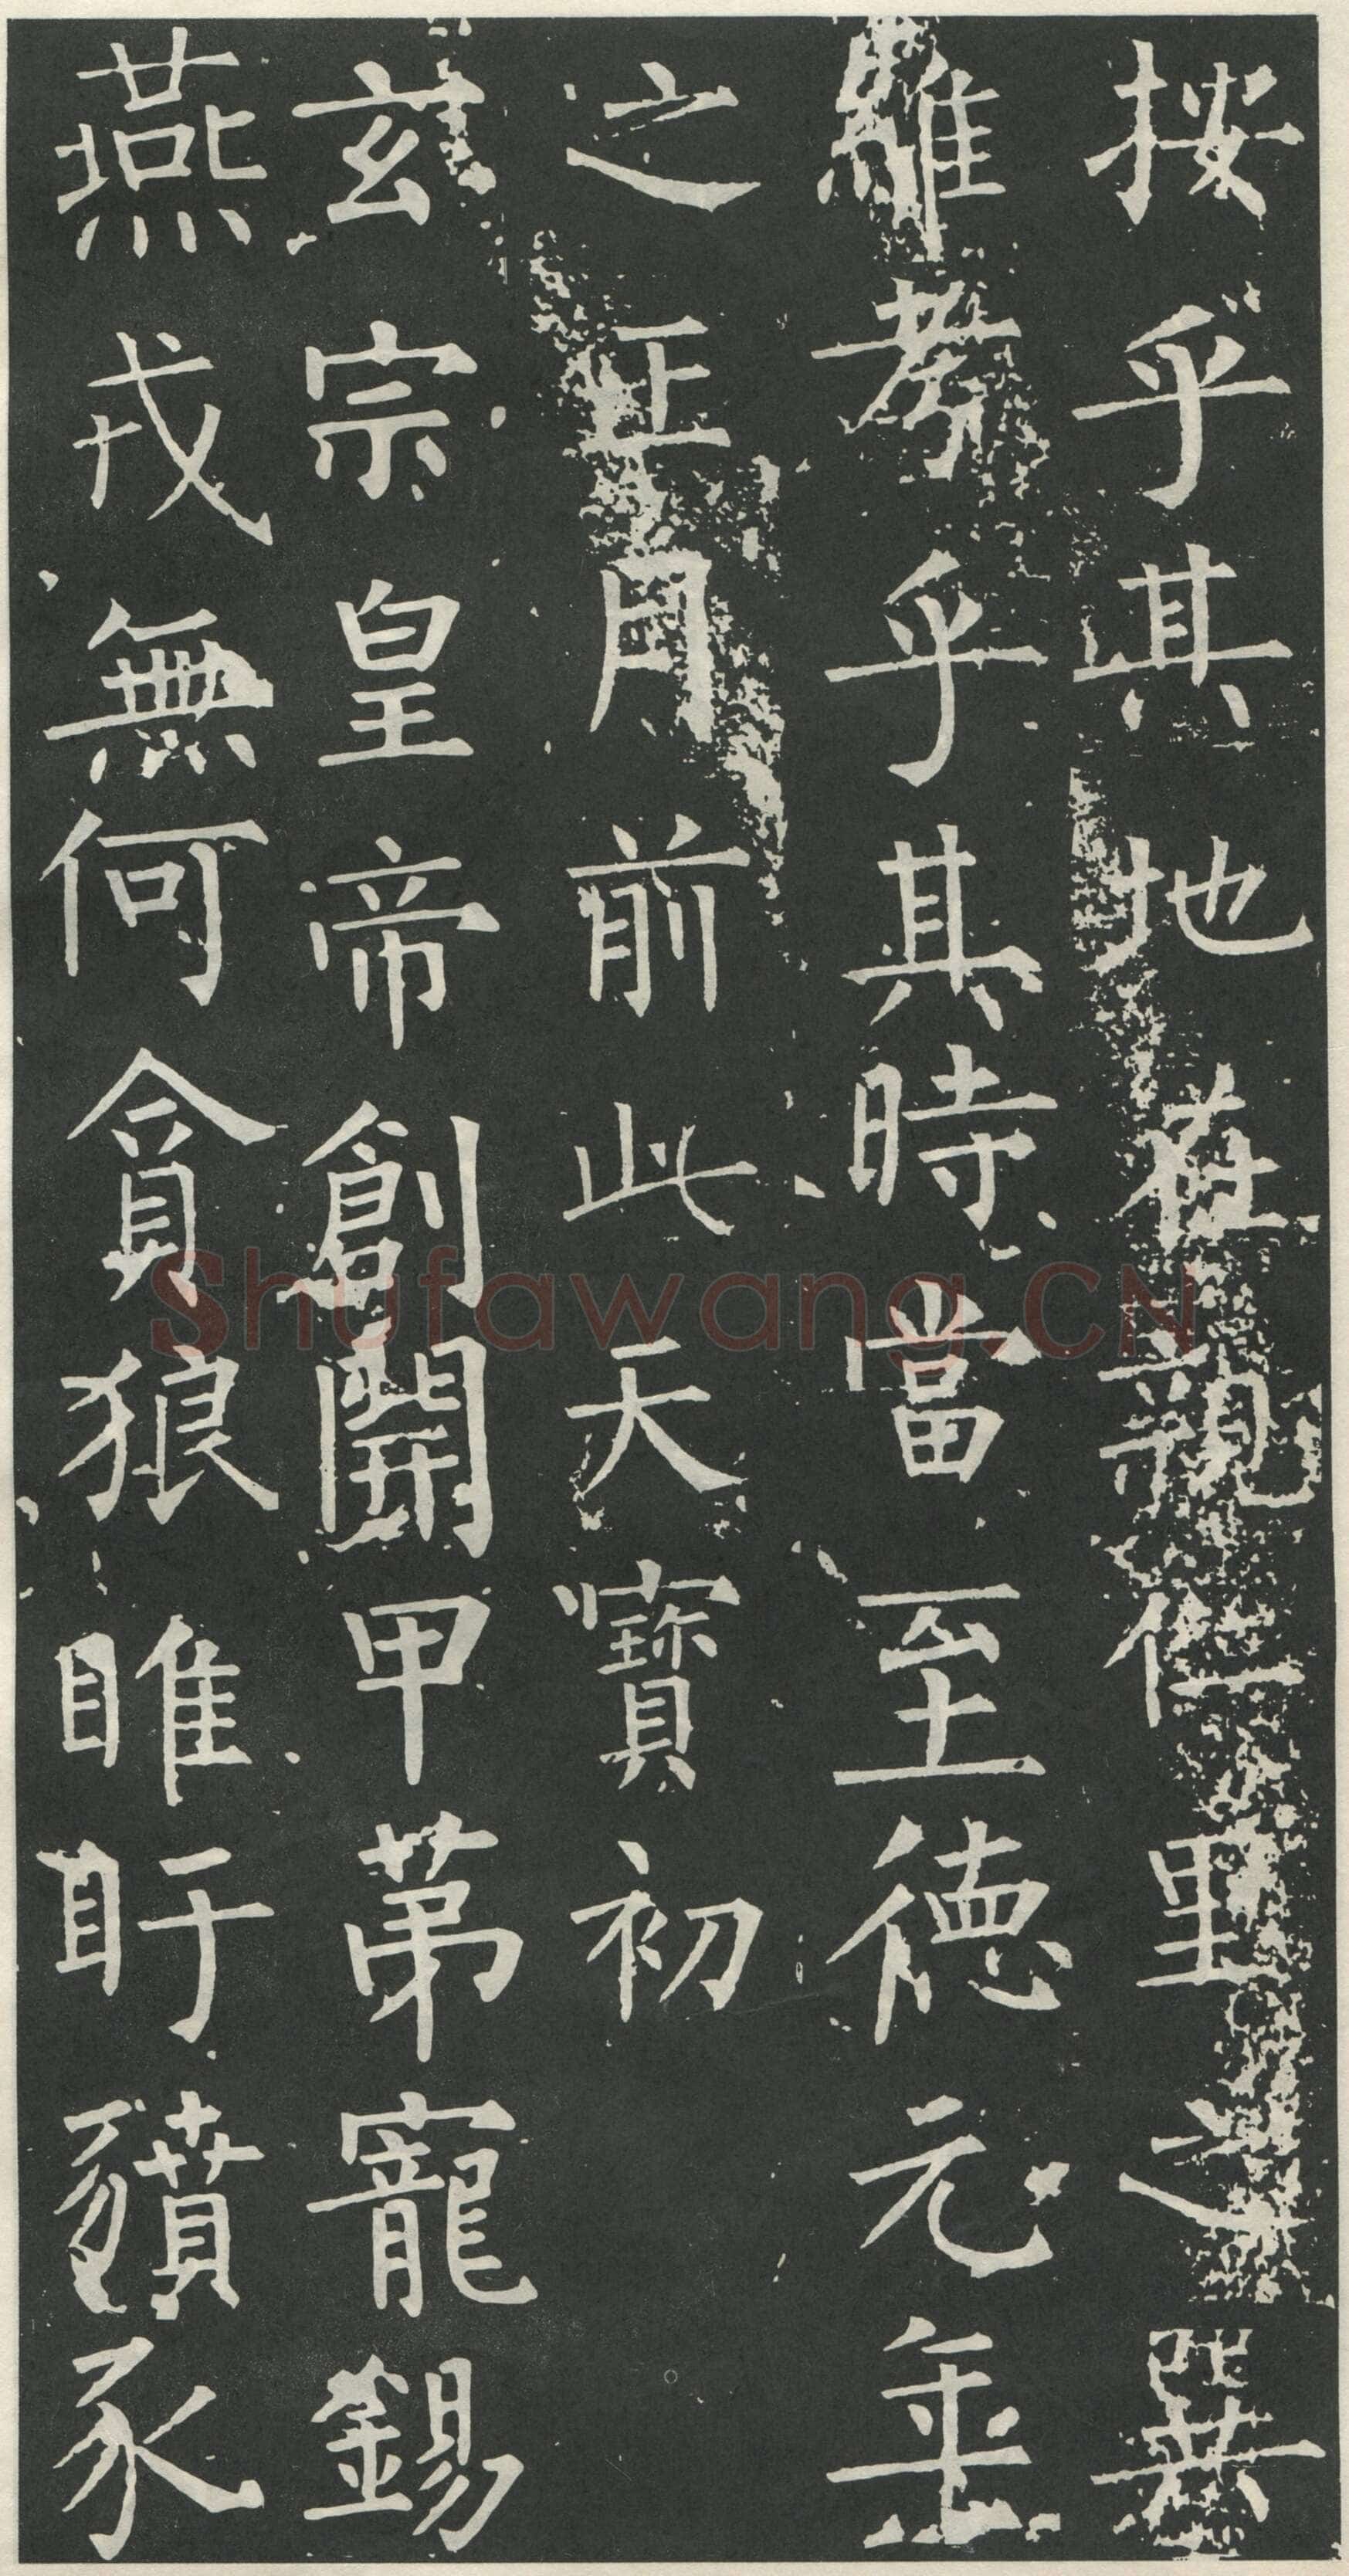 按乎其地在親仁里之巽
維考乎其時當至德元年
之正月前此天寶初
玄宗皇帝創開甲第寵錫
燕戎無何貪狼睢盱豶豕
Shufawang.CN